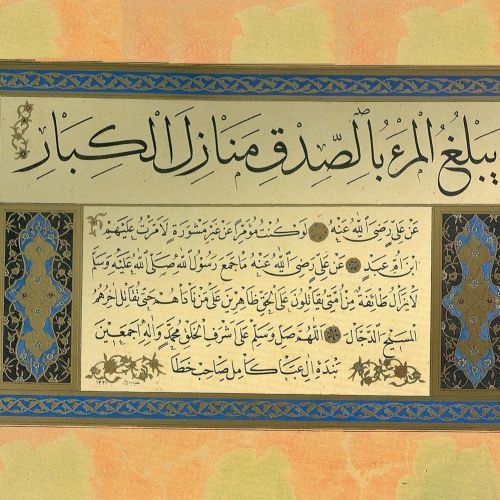 يَبْلُغُ الْمَرْءُ بِالصِّدْقِ مَنَازِلَ الْكِبَارِ
عَنْ عَلِيٍّ رَضِيَ اللهُ عَنْهُ لَوْ كُنْتُ مُؤَمِّرًا عَنْ غَيْرِ مَشُورَةٍ لَأَمَّرْتُ عَلَيْهِمْ
ابْنَ أُمِّ عَبْدٍ عَنْ عَلِيٍّ رَضِيَ اللهُ عَنْهُ مَا جَمَعَ رَسُولُ اللهِ صَلَّى اللهُ عَلَيْهِ وَسَلَّمَ
لَا يَزَالُ طَائِفَةٌ مِنْ أُمَّتِي يُقَاتِلُونَ عَلَى الْحَقِّ ظَاهِرِينَ عَلَى مَنْ نَاوَأَهُمْ حَتَّى يُقَاتِلَ آخِرُهُمُ
الْمَسِيحَ الدَّجَّالَ اللَّهُمَّ صَلِّ وَسَلِّمْ عَلَى أَشْرَفِ الْخَلْقِ مُحَمَّدٍ وَآلِهِ أَجْمَعِينَ
بنده آل عبا كامل صاحب خطا